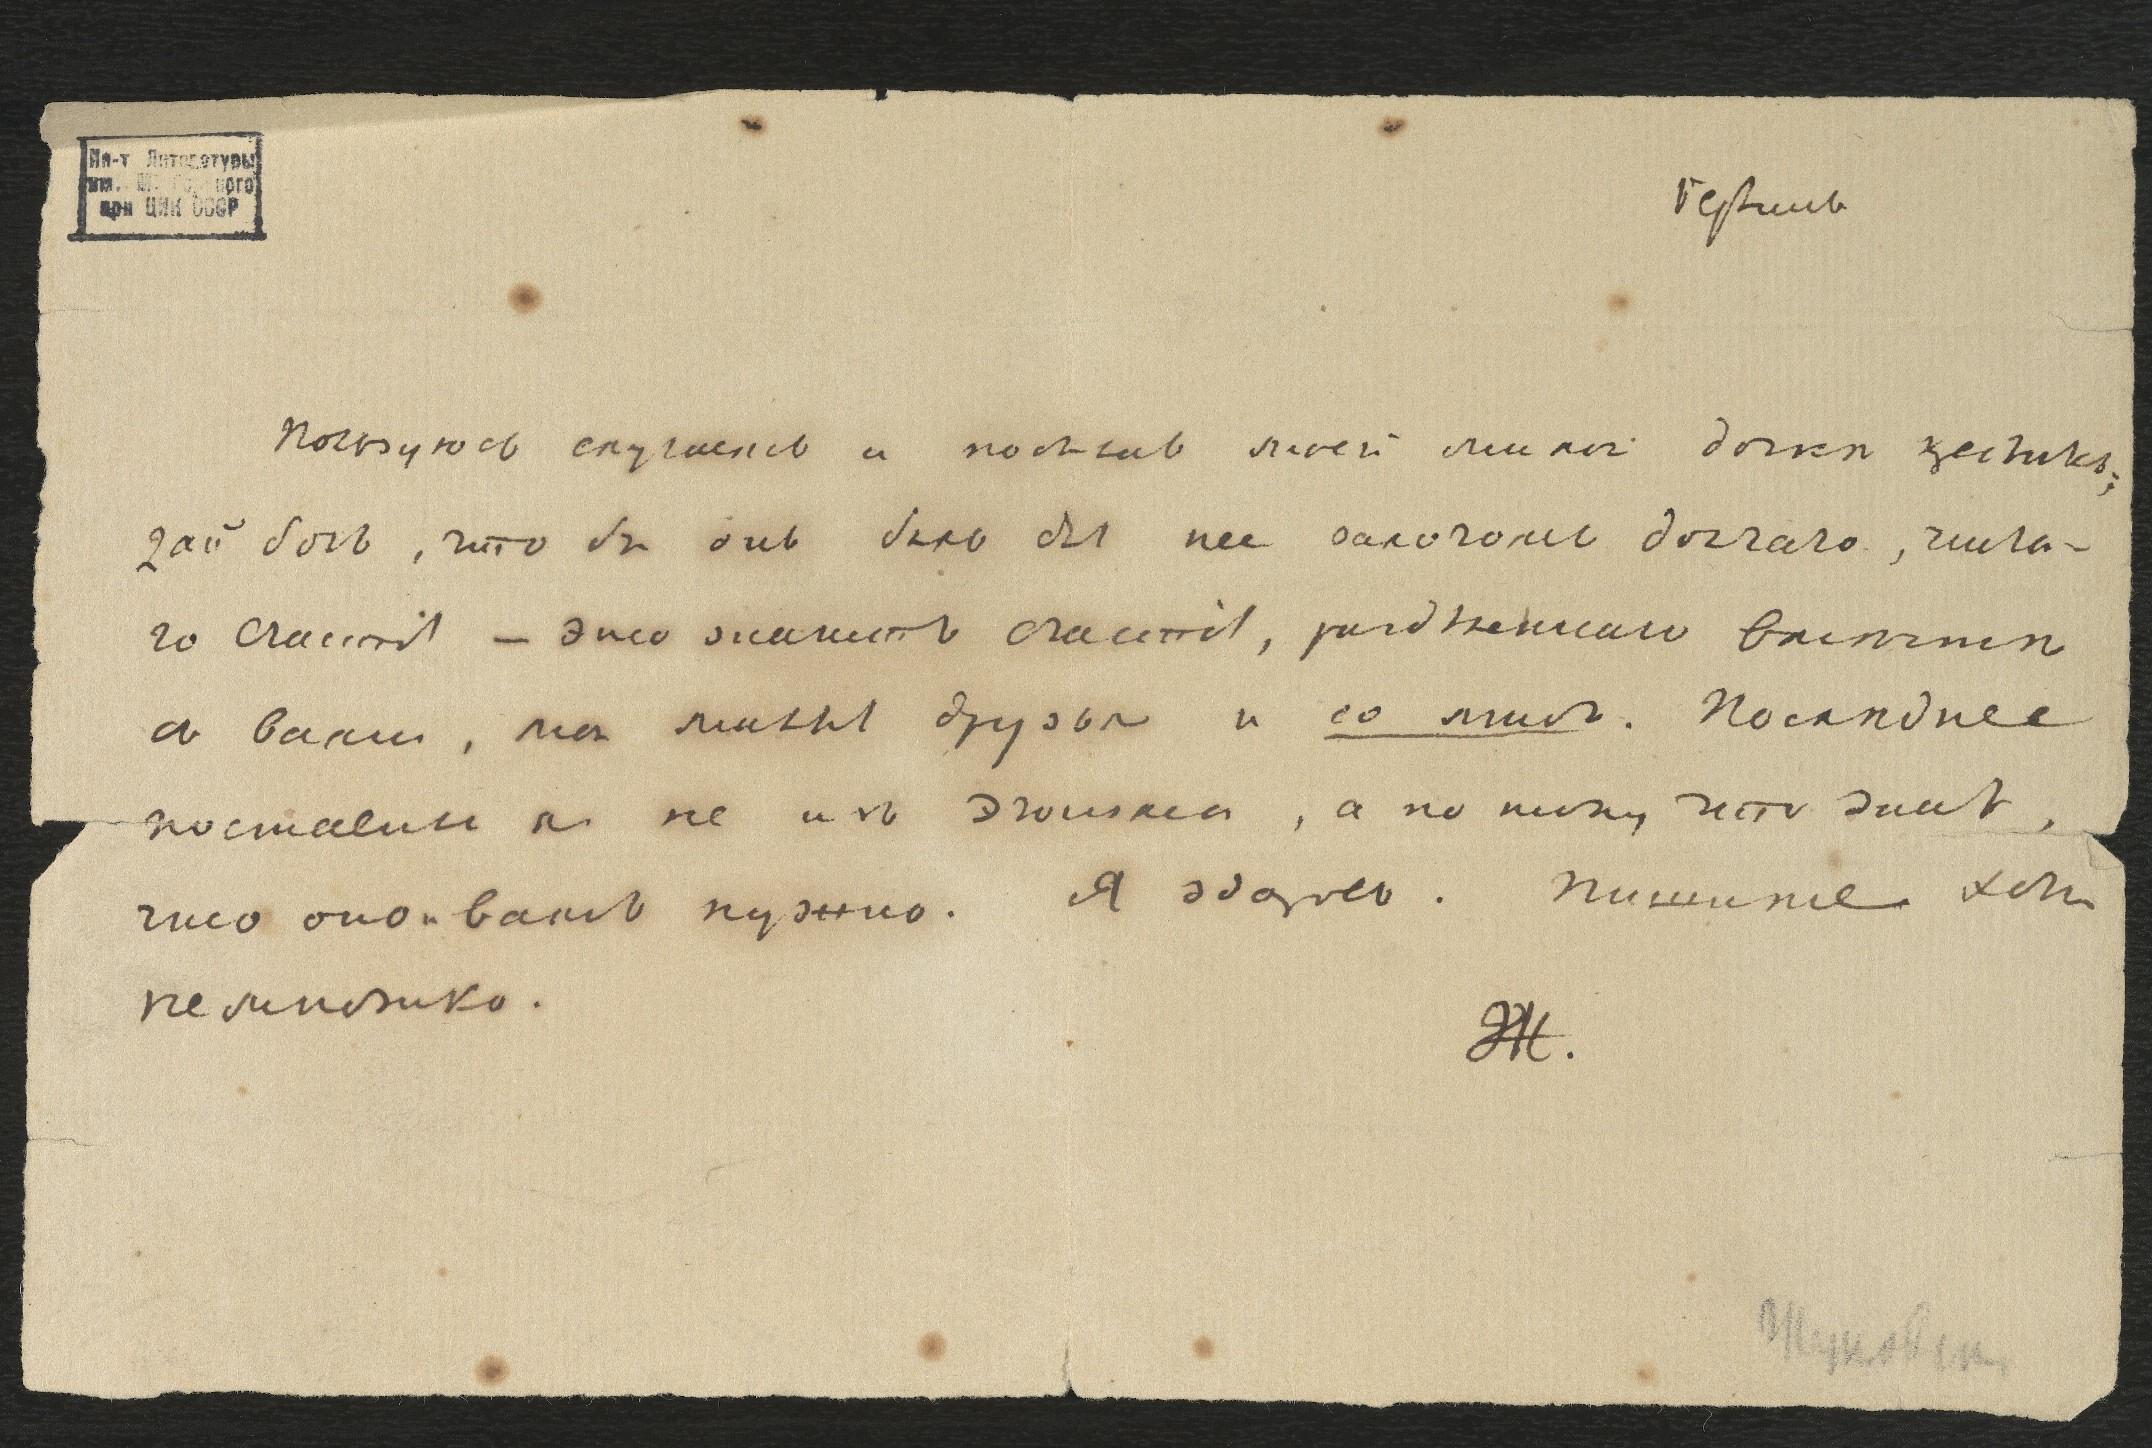 Ин-т Литературы
им. М. Горького
при ЦИК СССР
Берлинъ
Пользуюсь случаемъ и посылаю моей милой
дай богъ, что бы онъ былъ бы нее залогомъ долгаго, чиста-
го счастiя — это значитъ счастiя, раздѣленнаго вмѣстѣ
съ вами, мои милые друзья и со мной. Послѣднее
поставилъ я не изъ эгоизма, а по тому что знаю,
что оно и вамъ нужно. Я здоровъ. Пишите хоть
немножко.
Ж.
Жуковскiй